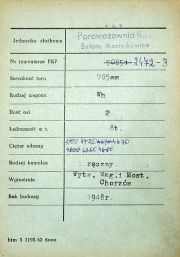 Jednostka służbowa
Parowozownia
Bytom Maciejkowice
Nr inwentarza PKP 2472-3
Szerokość toru 785mm
Rodzaj wagonu Wh
Ilość osi 2
Ładowność w t. 8t.
Ciężar własny
Rodzaj hamulca ręczny
Wytwórnia Wytw. Wag. i Most.
Chorzów
Rok budowy 1948r.